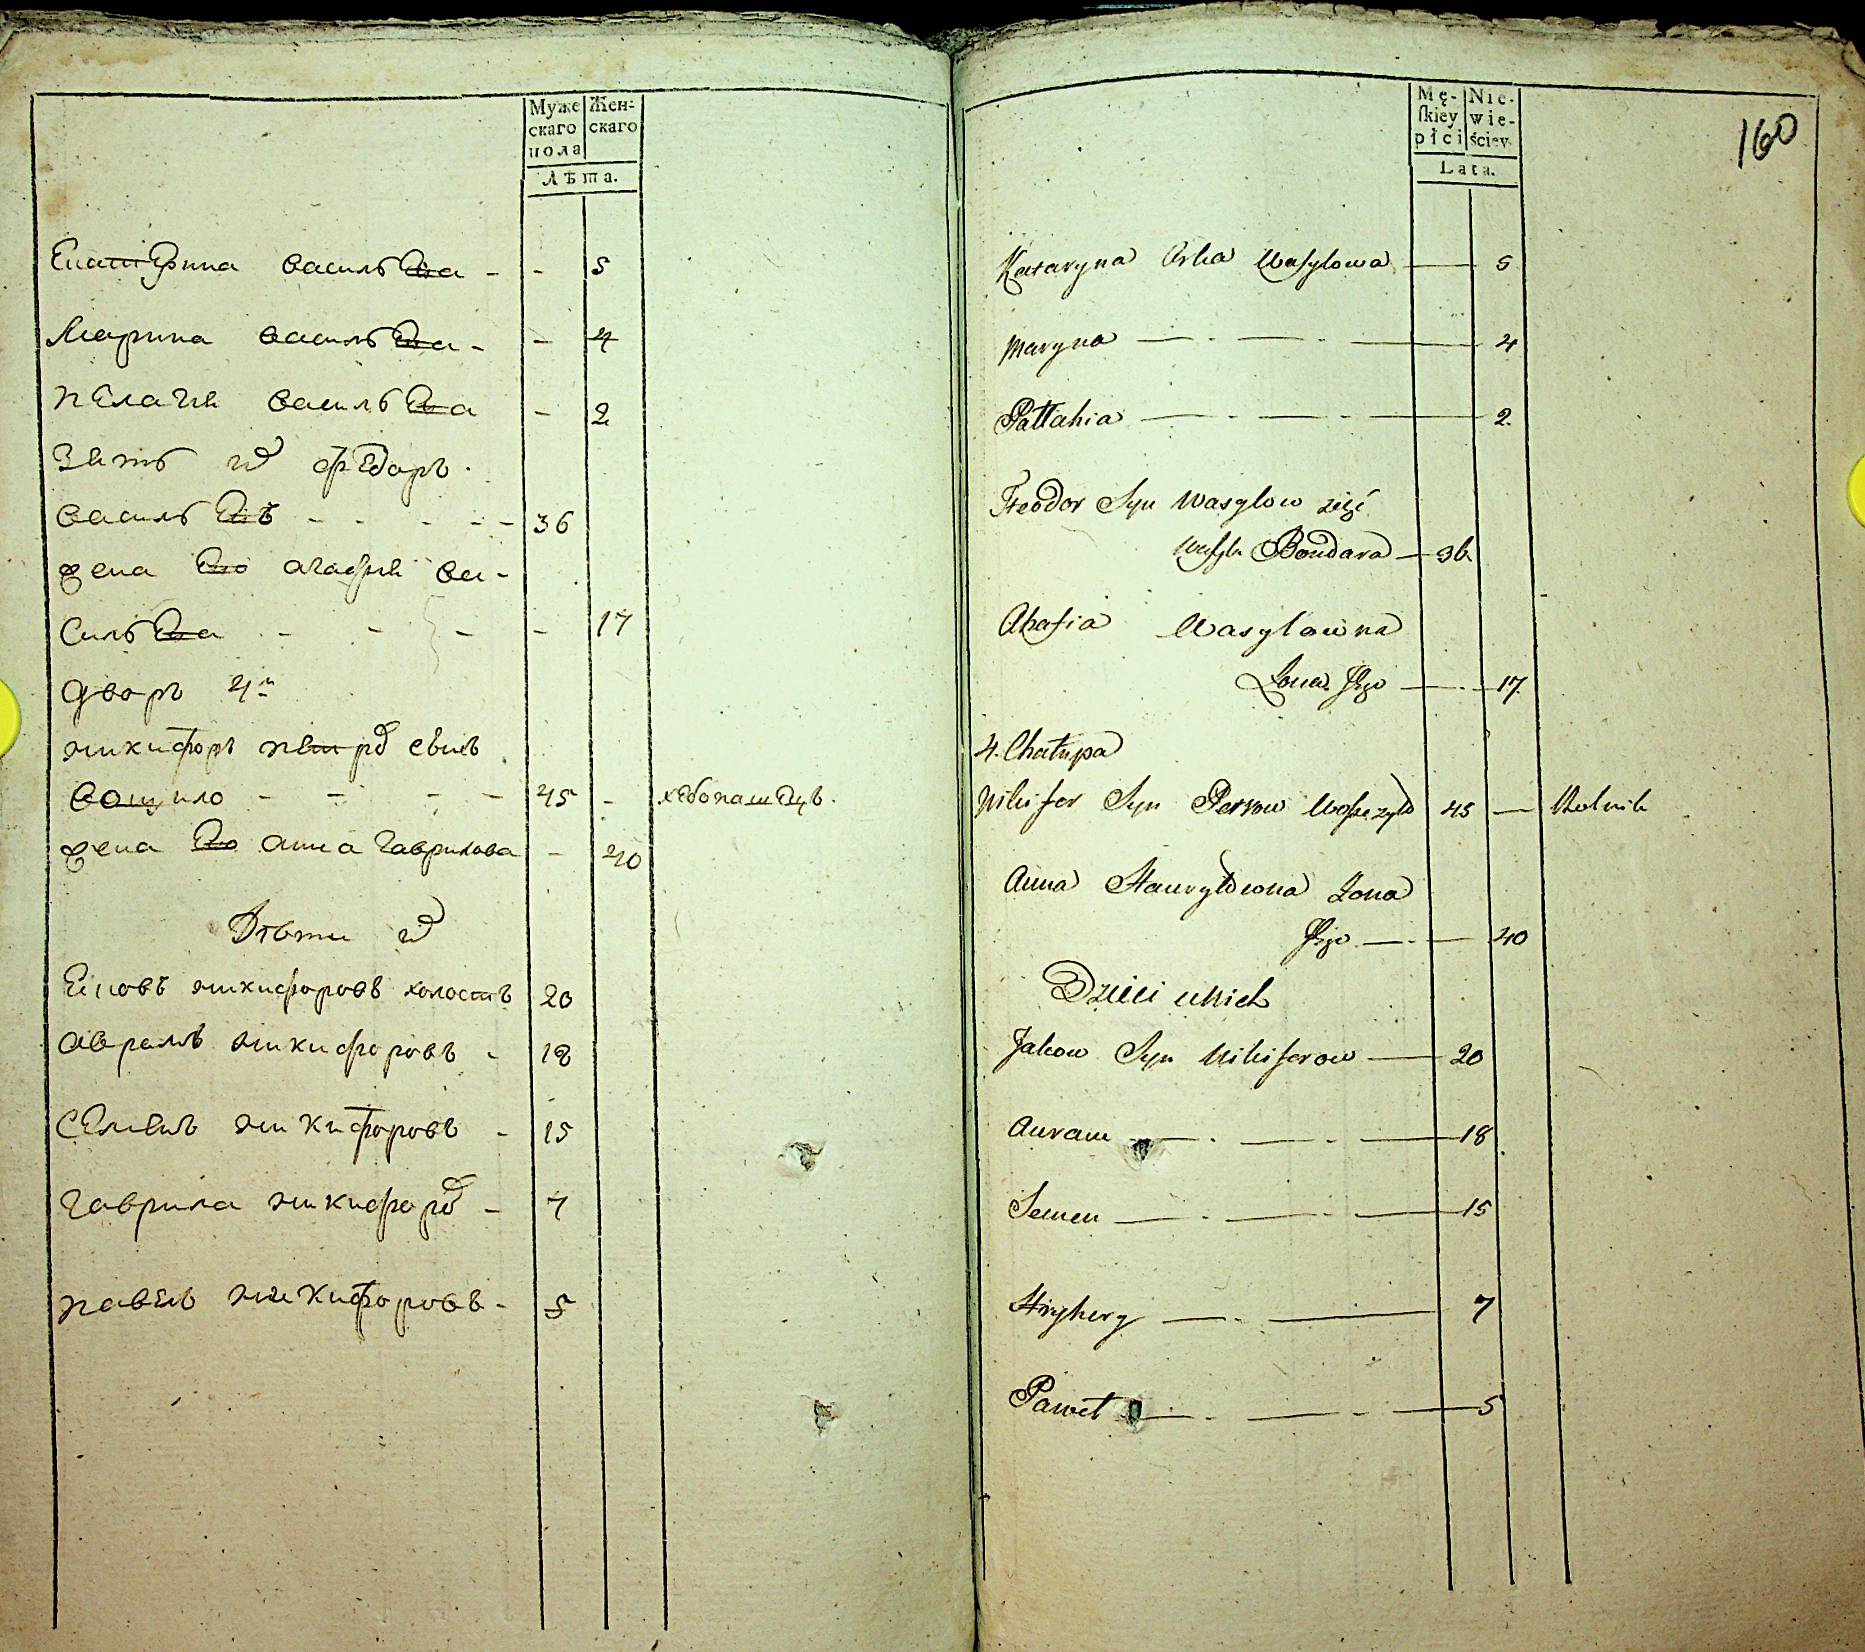 Муже
скаго
пола
Жен=
скаго
Лѣта.
Екатерина василева - - 5
Марина василева - - 4
пелагия василева - 2
Зять их федоръ
василевъ - - - - - 36
жена ево агафия ва-
силева - - - - 17
дворъ 4й
никифоръ петровъ сынъ
вощило - - - - 45 - хлебопашецъ.
жена ево анна гаврилова - 40
Дѣти их
яковъ никифоровъ холостъ 20
аврамъ никифоровъ - 18
семенъ никифоровъ - 15
гаврила никифоров - 7
павелъ никифоровъ - 5
160
Mę-
skiey
płci
Nie-
wie-
ściey.
Lata.
Kataryna Curka Wasylowa — 5
Maryna — - — - — 4
Pallahia — - — - — 2.
Fteodor Syn Wasylow zięć
Wasyla Bondara — 36.
Ahafia Wasylowna
Zona Jego — - — 17.
4. Chałupa
Nikifor Syn Petrow Woszczyło 45 — Rolnik
Anna Hawryłowna Zona
Jego — - — 40
Dzieci unich
Jakow Syn Nikiforow — 20
Auram — - — - — 18
Semen — - — - — 15
Hryhory — - — 7
Paweł — - — - — 5